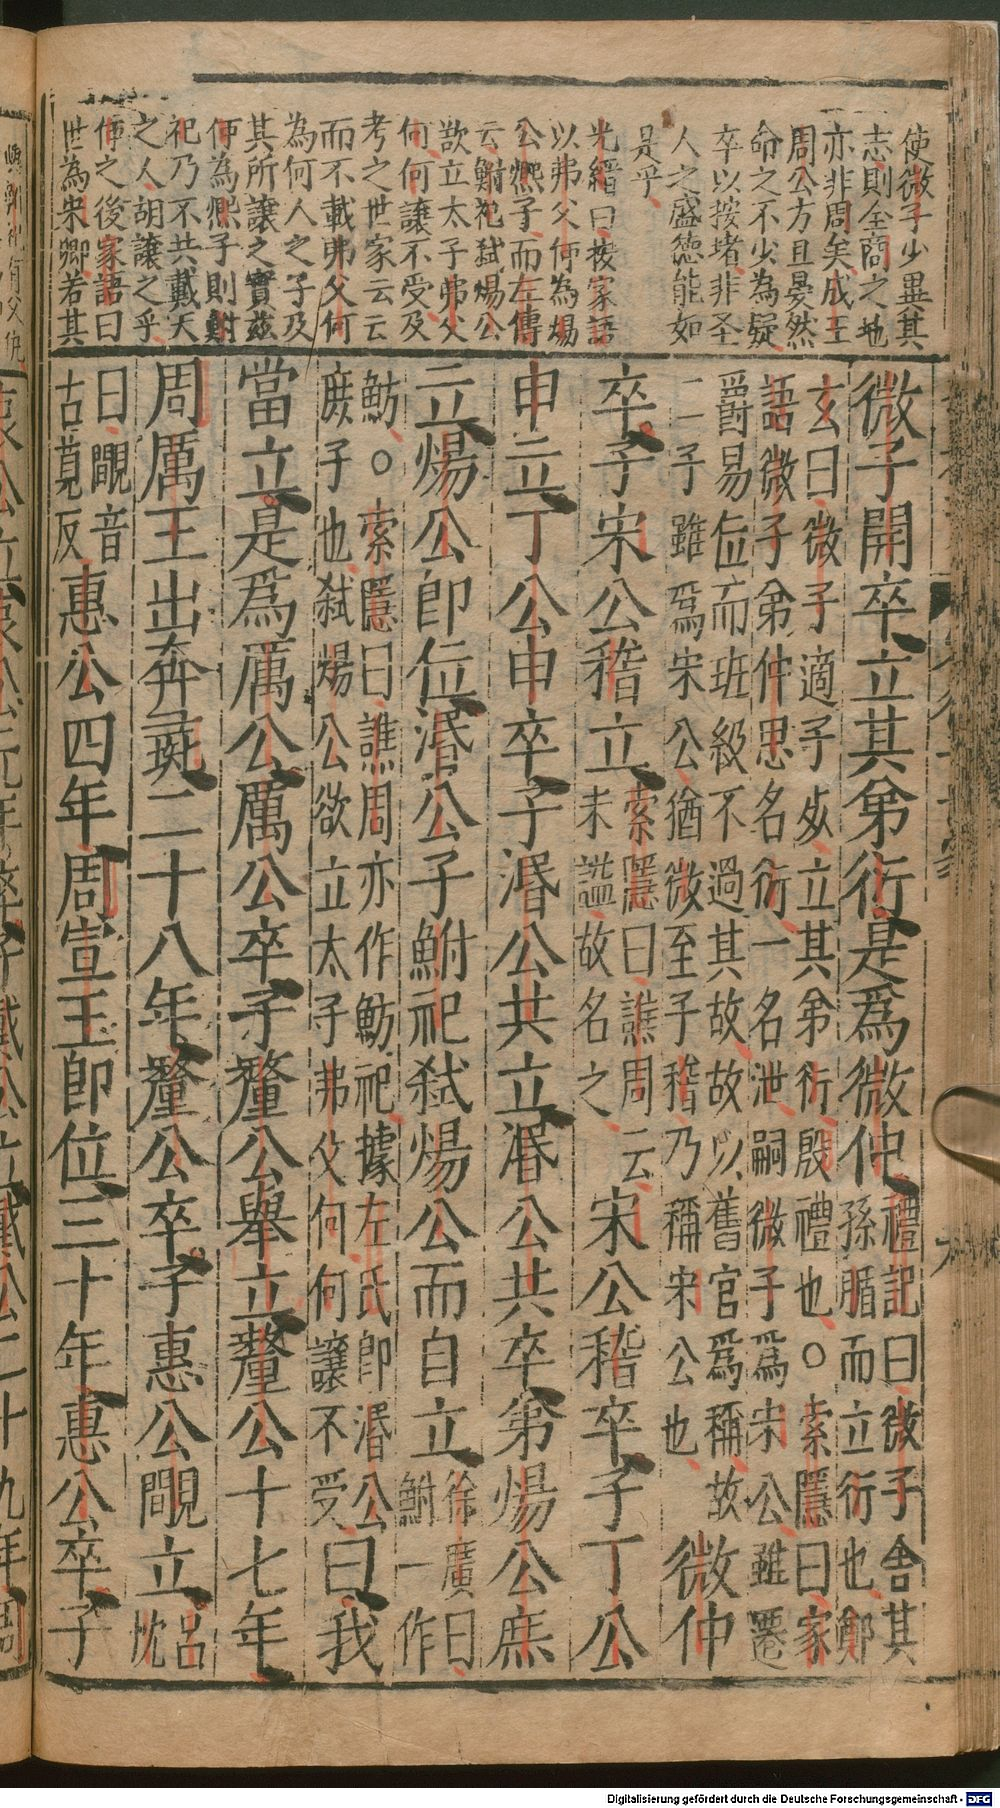 使微子少畢其
志則全商之地
亦非周矣成王
周公方且晏然
命之不少為疑
卒以按堵非圣
人之盛德能如
是乎
光縉曰按家語
以弗父何為煬
公熈子而左傳
云鮒祀弒煬公
欲立太子弗父
何何讓不受及
考之世家云云
而不載弗父何
為何人之子及
其所讓之實茲
何為熈子則鮒
祀乃不共戴天
之人胡讓之乎
何之後家語曰
世為宋卿若其
微子開卒立其弟衍是爲微仲
禮記曰微子舍其
孫腯而立衍也鄭
玄曰微子適子死立其弟衍殷禮也○索隱曰家
語微子弟仲思名衍一名泄嗣微子爲宋公雖遷
爵易位而班級不過其故故以舊官爲稱故
二子雖爲宋公猶微至子稽乃稱宋公也
微仲
卒子宋公稽立
索隱曰譙周云
未謚故名之
宋公稽卒子丁公
申立丁公申卒子湣公共立湣公共卒弟煬公熈
立煬公即位湣公子鮒祀弒煬公而自立
徐廣曰
鮒一作
魴○索隱曰譙周亦作魴祀據左氏即湣公
庶子也弒煬公欲立太子弗父何何讓不受
曰我
當立是爲厲公厲公卒子釐公舉立釐公十七年
周厲王出奔彘二十八年釐公卒子惠公覸立
呂
忱
曰覸音
古莧反
惠公四年周宣王即位三十年惠公卒子
哀公立哀公元年卒子戴公立戴公二十九年周
Digitalisierung gefördert durch die Deutsche Forschungsgemeinschaft - DFG